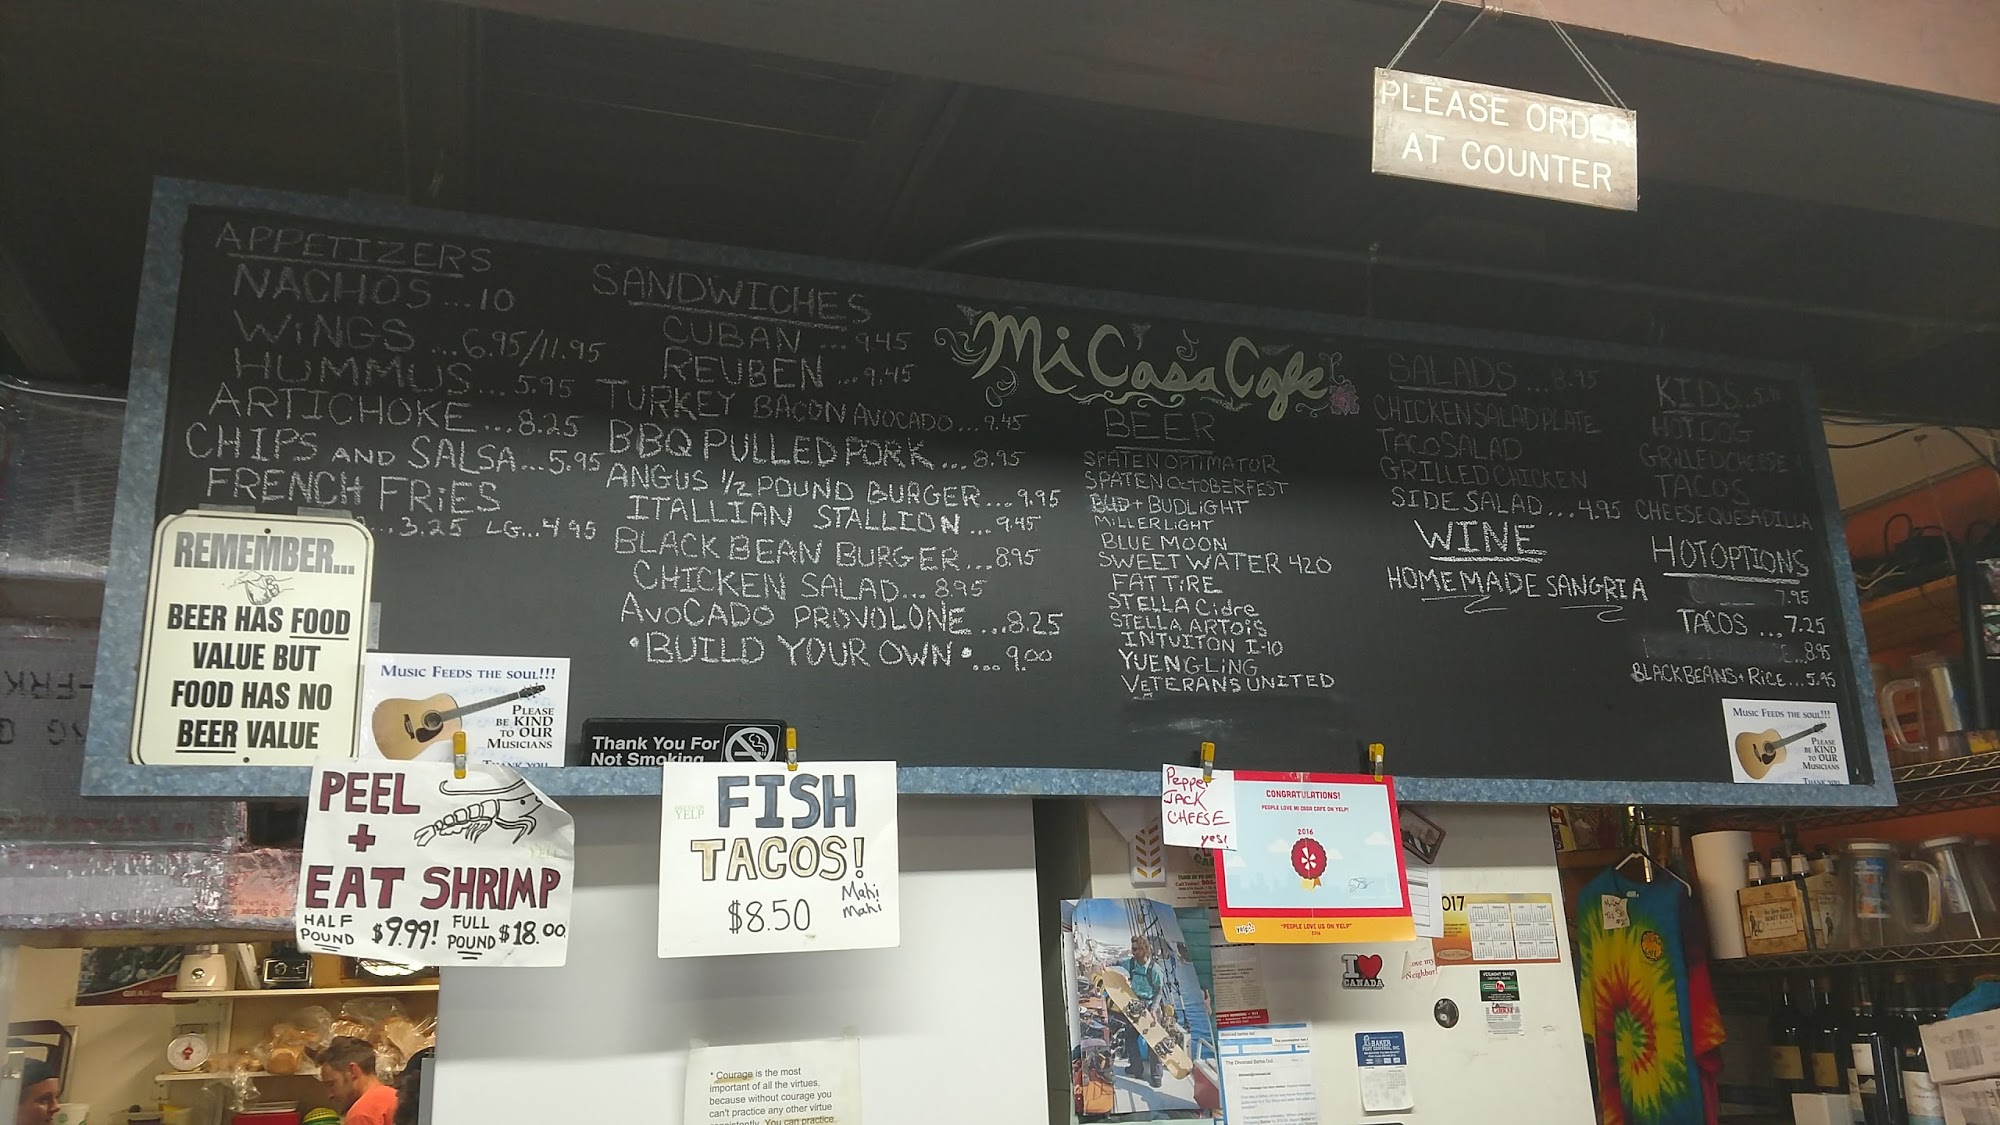 PLEASE ORDER
AT COUNTER
APPETIZERS
NACHOS...10
WiNGS ...6.95/11.95
HUMMUS...5.95
ARTICHOKE...8.25
CHIPS AND SALSA...5.95
FRENCH FRiES
...3.25 LG...4.95
SANDWICHES
CUBAN ...9.45
REUBEN ...9.45
TURKEY BACON AVOCADO...9.45
BBQ PULLED PORK...8.95
ANGUS 1/2 POUND BURGER...9.95
ITALLIAN STALLION...9.45
BLACK BEAN BURGER...8.95
CHICKEN SALAD...8.95
AVOCADO PROVOLONE...8.25
•BUILD YOUR OWN•...9.00
Mi Casa Cafe
BEER
SPATEN OPTIMATOR
SPATEN OCTOBERFEST
BUD + BUDLIGHT
MiLLER LIGHT
BLUE MOON
SWEET WATER 420
FAT TiRE
STELLA Cidre
STELLA ARTOIS
INTUITON I-10
YUENGLiNG
VETERANS UNITED
SALADS...8.95
CHICKEN SALAD PLATE
TACO SALAD
GRILLED CHICKEN
SIDE SALAD...4.95
WINE
HOMEMADE SANGRIA
KIDS
HOT DOG
GRILLED CHEESE
TACOS
CHEESE QUESADILLA
HOT OPTIONS
7.95
TACOS ...7.25
...8.95
BLACK BEANS + RICE...5.95
REMEMBER...
BEER HAS FOOD
VALUE BUT
FOOD HAS NO
BEER VALUE
MUSIC FEEDS THE SOUL!!!
PLEASE
BE KIND
TO OUR
MUSICIANS
THANK YOU
Thank You For
Not Smoking
MUSIC FEEDS THE SOUL!!!
PLEASE
BE KIND
TO OUR
MUSICIANS
THANK YOU
PEEL
+
EAT SHRIMP
HALF
POUND $9.99! FULL
POUND $18.00
YELP
FISH
TACOS!
$8.50
Mahi
Mahi
Pepper
JACK
CHEESE
yes!
CONGRATULATIONS!
PEOPLE LOVE MI CASA CAFE ON YELP!
2016
yelp
"PEOPLE LOVE US ON YELP"
2016
I
CANADA
love my
Neighbor!
BAKER
PEST CONTROL, INC.
* Courage is the most
important of all the virtues,
because without courage you
can't practice any other virtue
consistently. You can practice